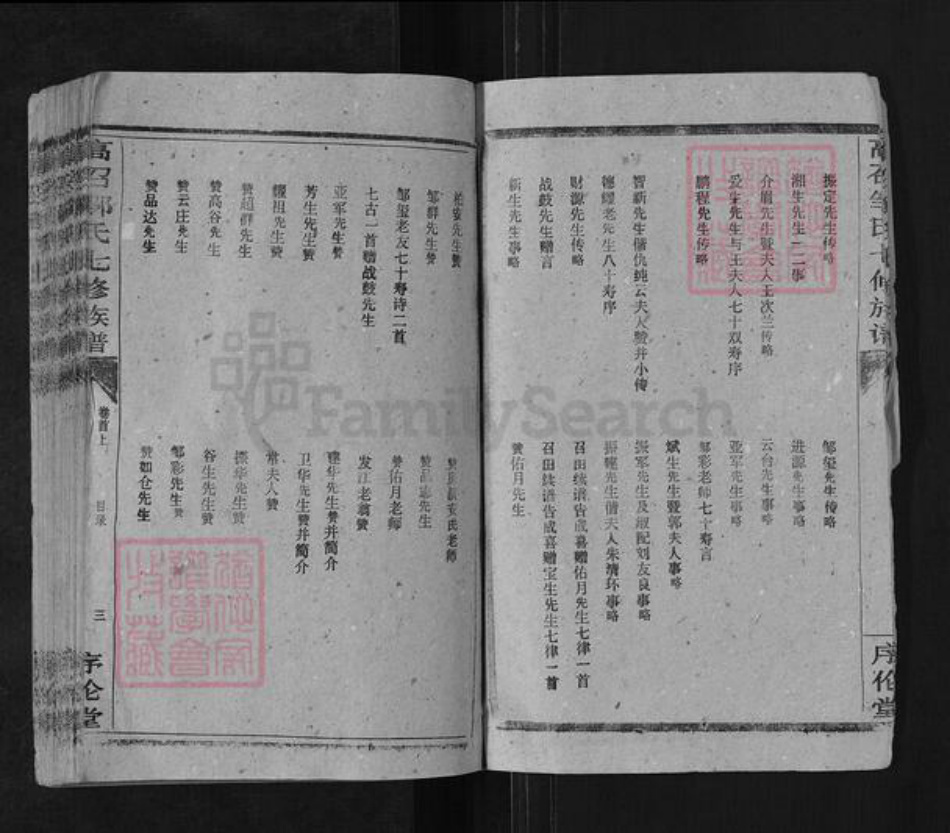 振定先生传略
湘生先生一二事
介眉先生暨夫人王次兰传略
爱生先生与王夫人七十双寿序
鹏程先生传略
智新先生偕仇纯云夫人赞并小传
德耀老先生八十寿序
财源先生传略
战鼓先生赠言
新生先生事略
邹玺先生传略
进源先生事略
云台先生事略
亚军先生事略
邹彩老师七十寿言
斌生先生暨郭夫人事略
振军先生及淑配刘友良事略
振程先生偕夫人朱清环事略
召田续谱告成喜赠佑月先生七律一首
召田续谱告成喜赠宝生先生七律一首
赞佑月先生
序伦堂
柏安先生赞
邹群先生赞
邹玺老友七十寿诗二首
七古一首赠战鼓先生
亚军先生赞
芳生先生赞
耀祖先生赞
赞超群先生
赞高谷先生
赞云庄先生
赞品达先生
赞佑月老师
发江老翁赞
建华先生赞并简介
卫华先生赞并简介
常夫人赞
振华先生赞
谷生先生赞
邹彩先生赞
赞如仓先生
高召邹氏七修族谱
卷首上
目录
三
序伦堂
FamilySearch